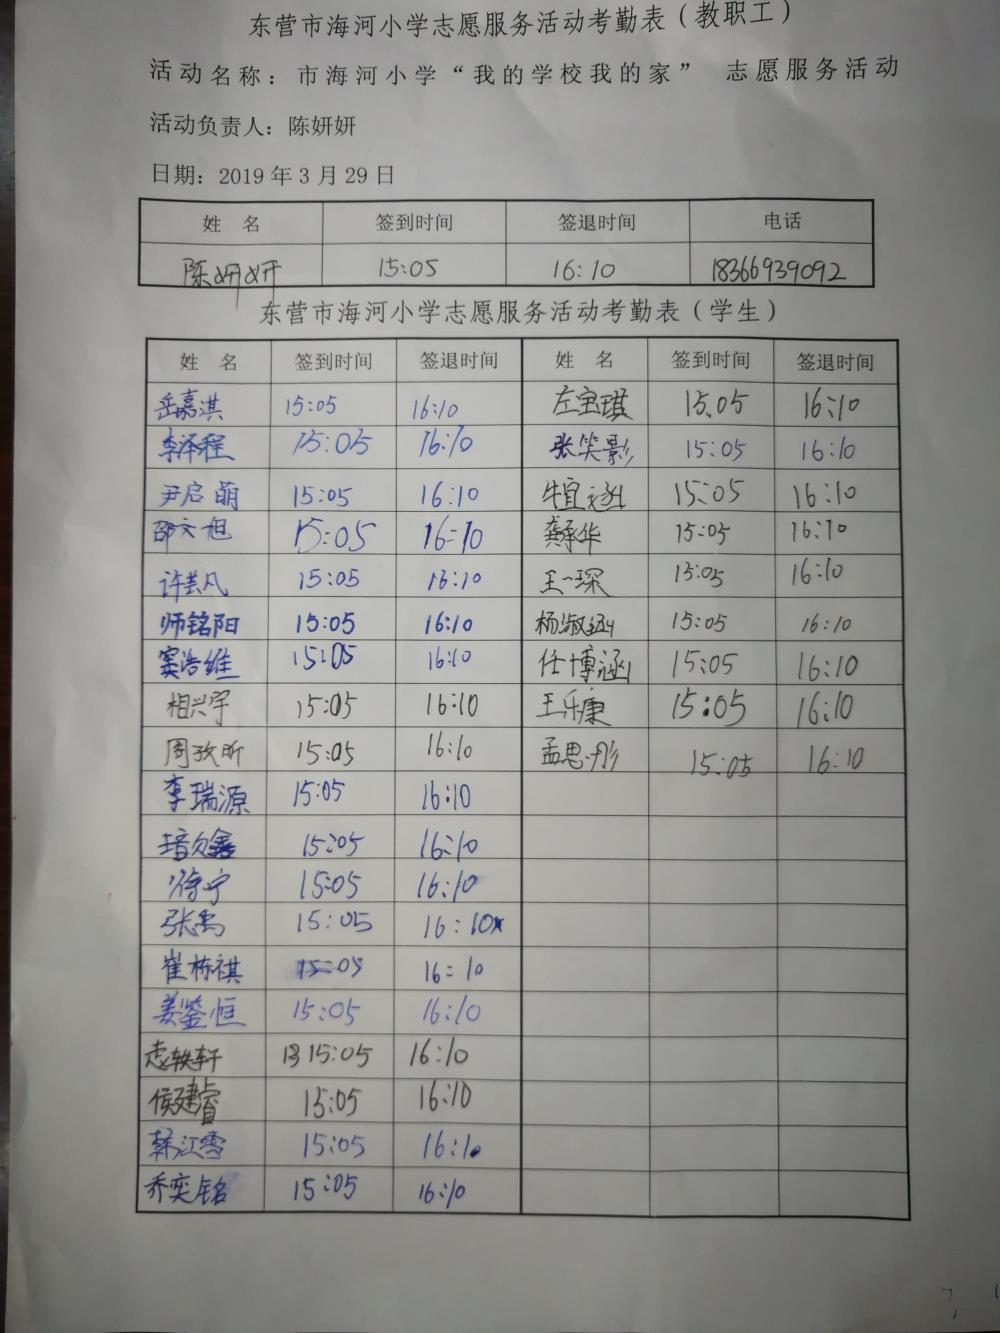 东营市海河小学志愿服务活动考勤表（教职工）
活动名称：市海河小学“我的学校我的家” 志愿服务活动
活动负责人：陈妍妍
日期：2019年3月29日
姓 名 签到时间 签退时间 电话
陈妍妍 15:05 16:10 18366939092
东营市海河小学志愿服务活动考勤表（学生）
姓 名 签到时间 签退时间 姓 名 签到时间 签退时间
岳嘉淇 15:05 16:10 左宝琪 15.05 16:10
李泽程 15:05 16:10 张笑影 15:05 16:10
尹启萌 15:05 16:10 牛宜 15:05 16:10
邵文旭 15:05 16:10 龚承华 15:05 16:10
许芸凡 15:05 16:10 王一琛 15:05 16:10
师铭阳 15:05 16:10 杨淑涵 15:05 16:10
窦浩维 15:05 16:10 任博涵 15:05 16:10
相兴宇 15:05 16:10 王乐康 15:05 16:10
周孜昕 15:05 16:10 孟思彤 15:05 16:10
李瑞源 15:05 16:10
15:05 16:10
徐宁 15:05 16:10
张禹 15:05 16:10
崔栋祺 15:05 16:10
姜鉴恒 15:05 16:10
轶轩 15:05 16:10
侯建睿 15:05 16:10
韩江雪 15:05 16:10
乔奕铭 15:05 16:10